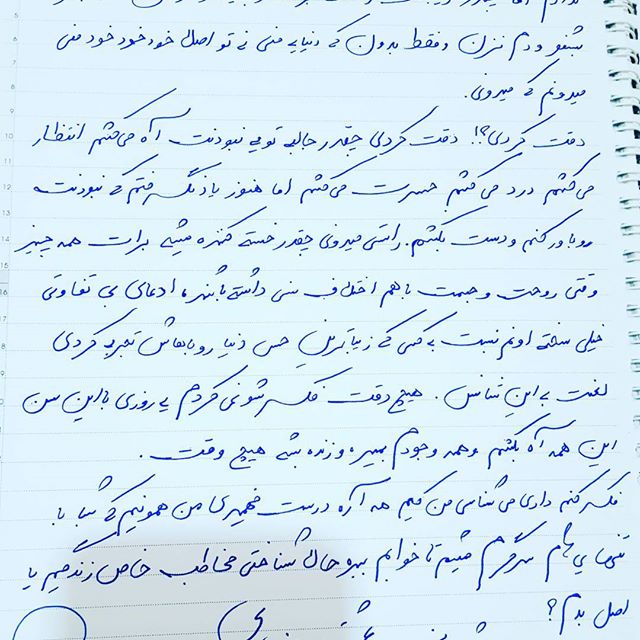 بشنو و دم نزن و فقط بدون که دنیای منی نه تو اصلا خود خود خود منی
میدونم که میدونی.
دقت کردی؟! دقت کردی چقدر جالبه تو بی نبودنت آه می‌کشم انتظار
می‌کشم درد می‌کشم حسرت می‌کشم اما هنوز یاد نگرفتم که نبودنت
رو باور کنم و دست بکشم. راستی میدونی چقدر خسته کننده میشه برات همه چیز
وقتی روحت و جسمت با هم اختلاف سنی داشته باشند، ادعای بی تفاوتی
خیلی سخته اونم نسبت به کسی که زیباترین حس دنیا رو باهاش تجربه کردی
لعنت به این شانس. هیچ وقت فکرشو نمی‌کردم یه روزی با این سن
این همه آه بکشم و همه وجودم بمیره و زنده بشه هیچ وقت.
فکر کنم داری می‌شناسی من کیم هه آره درست فهمیدی من همونیم که شبا با
تنهایی هام سرگرم میشم تا خوابم ببره حالا شناختی مخاطب خاص زندگیم یا
اصل بدم؟